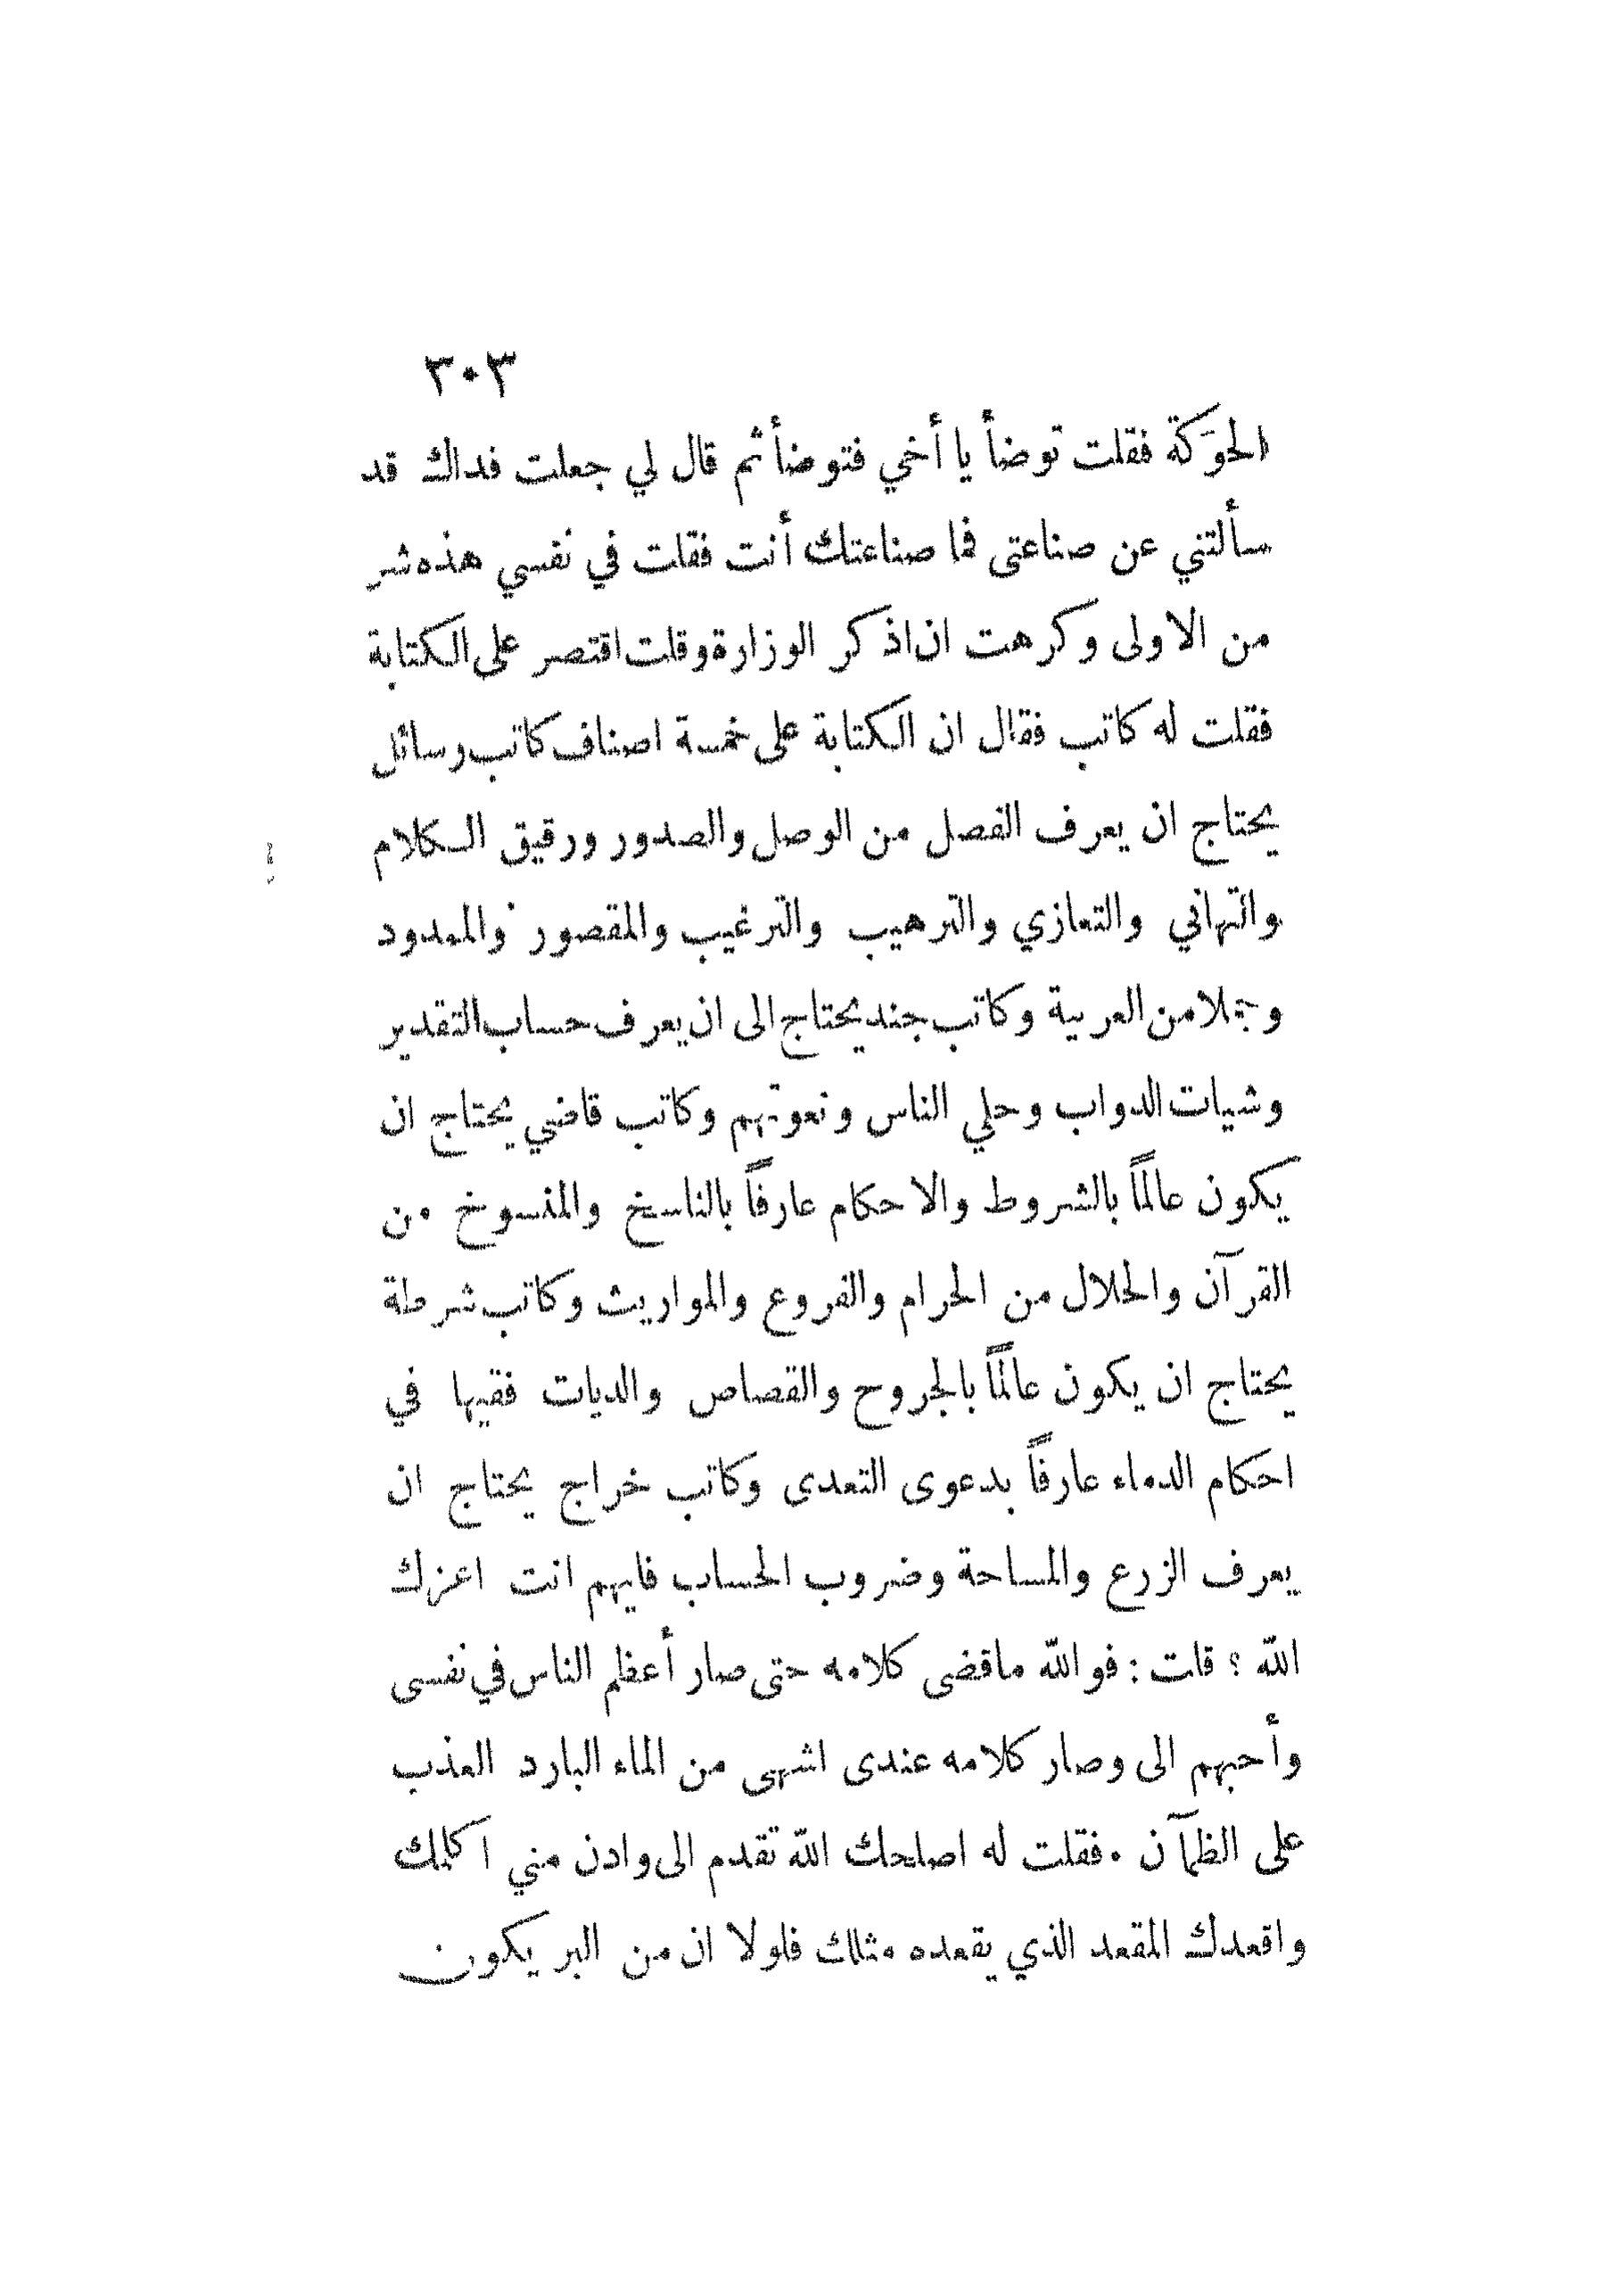 ٣٠٣
الحوَكة فقلت توضأ يا أخي فتوضأ ثم قال لي جعلت فداك قد
سألتني عن صناعتى فما صناعتك أنت فقلت في نفسي هذه شر
من الاولى وكرهت ان اذكر الوزارة وقلت اقتصر على الكتابة
فقلت له كاتب فقال ان الكتابة على خمسة اصناف كاتب رسائل
يحتاج ان يعرف الفصل من الوصل والصدور ورقيق الكلام
والتهاني والتعازي والترهيب والترغيب والمقصور والممدود
وجملا من العربية وكاتب جند يحتاج الى ان يعرف حساب التقدير
وشيات الدواب وحلي الناس ونعوتهم وكاتب قاضي يحتاج ان
يكون عالماً بالشروط والاحكام عارفاً بالناسخ والمنسوخ من
القرآن والحلال من الحرام والفروع والمواريث وكاتب شرطة
يحتاج ان يكون عالماً بالجروح والقصاص والديات فقيها في
احكام الدماء عارفاً بدعوى التعدى وكاتب خراج يحتاج ان
يعرف الزرع والمساحة وضروب الحساب فايهم انت اعزك
الله ؟ قلت : فوالله ماقضى كلامه حتى صار أعظم الناس في نفسى
وأحبهم الى وصار كلامه عندى اشهى من الماء البارد العذب
على الظمآن . فقلت له اصلحك الله تقدم الى وادن مني اكلمك
واقعدك المقعد الذي يقعده مثلك فلولا ان من البر يكون